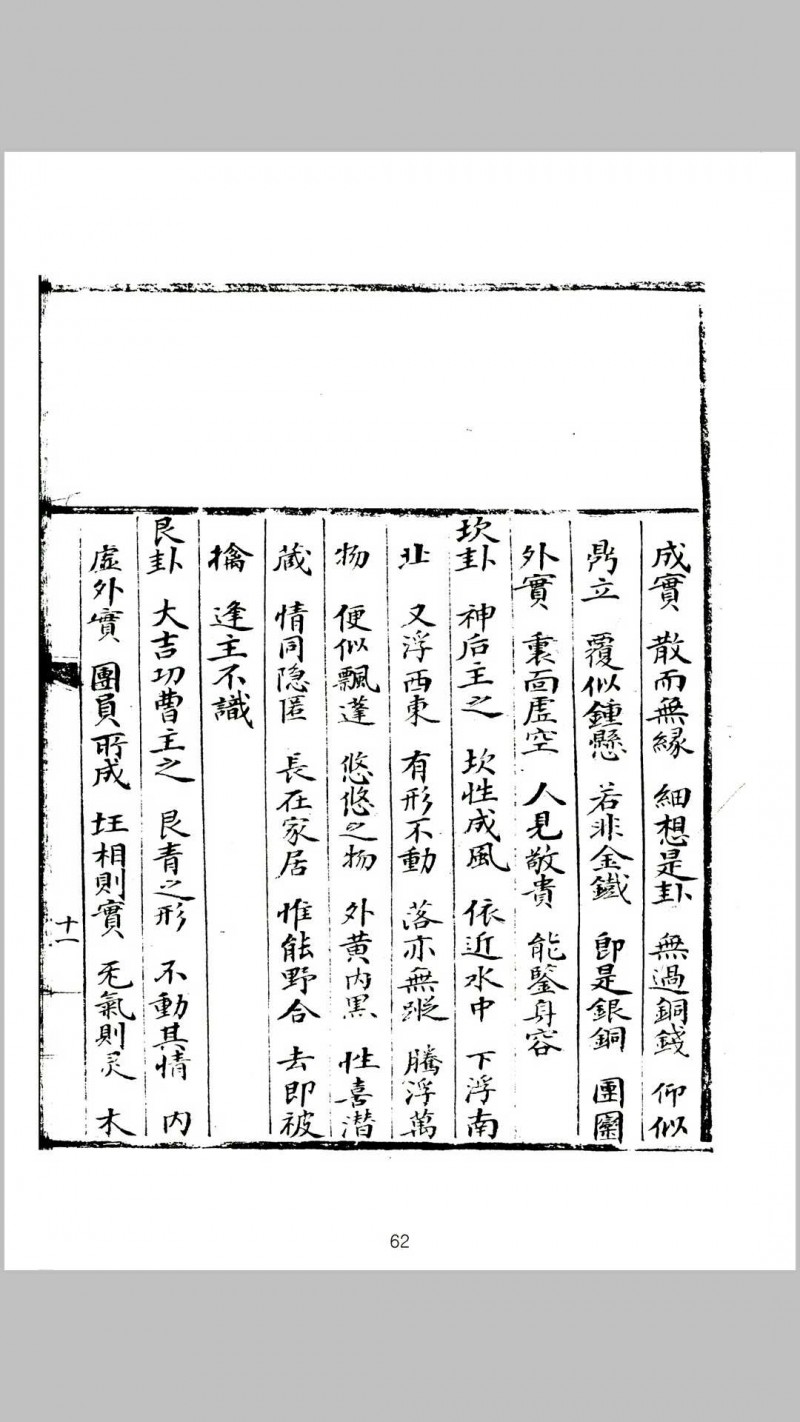 成實 散而無緣 細想是卦 無過銅錢 仰似
鼎立 覆似鍾懸 若非金鐵 即是銀銅 團圞
外實 裏面虛空 人見敬貴 能鑒身容
坎卦 神后主之 坎性成風 依近水中 下浮南
北 又浮西東 有形不動 落亦無蹤 騰浮萬
物 便似飄蓬 悠悠之物 外黄内黑 性喜潜
蔵 情同隐匿 長在家居 惟能野合 去即被
擒 逢主不識
艮卦 大吉功曹主之 艮青之形 不動其情 内
虛外實 團員所成 王相則實 旡氣則灵 木
十一
62